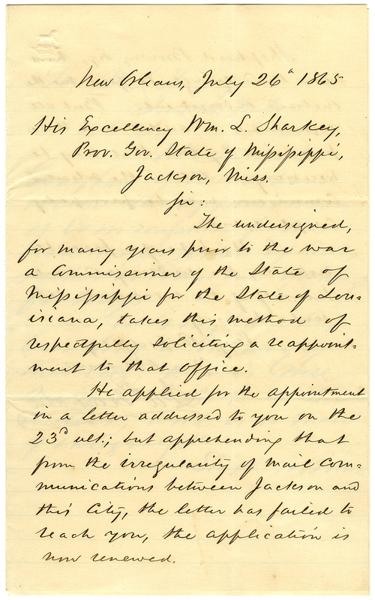 New Orleans, July 26" 1865
His Excellency Wm. L. Sharkey,
Prov. Gov. State of Mississippi,
Jackson, Miss.
Sir:
The undersigned,
for many years prior to the war
a Commissioner of the State of
Mississippi for the State of Lou-
isiana, takes this method of
respectfully soliciting a reappoint-
ment to that office.
He applied for the appointment
in a letter addressed to you on the
23d ult.; but apprehending that
from the irregularity of mail com-
munications between Jackson and
this City, the letter has failed to
reach you, the application is
now renewed.